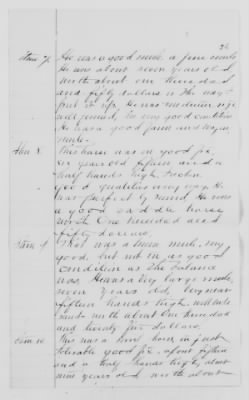 26
Item 7. He was a good mule, a fine mule
He was about seven years old
worth about one hundred
and fifty dollars is the way I
put it up. He was medium size
well formed, in very good condition
He was a good farm and wagon
mule.
Item 8. This horse was in good fix,
six years old fifteen and a
half hands high
good qualities every way. He
was perfectly sound. He was
a good saddle horse
worth One hundred and
fifty dollars.
Item 9. That was a mule, very
good but not in as good
condition as the
was. He was a very large mule,
seven years old, very near
fifteen hands high,
worth about One hundred
and twenty five dollars.
Item 10. This was a horse in just
tolerable good fix, about fifteen
and a half hands high, about
nine years old worth about